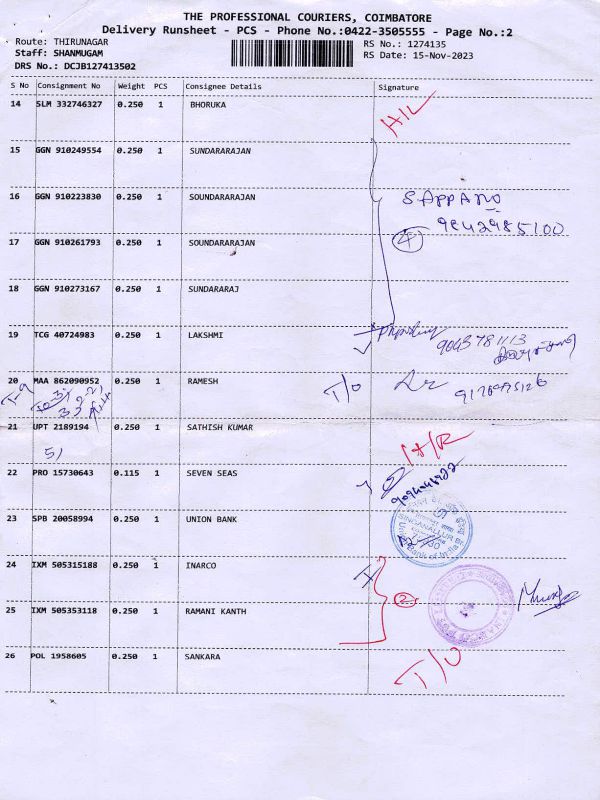 THE PROFESSIONAL COURIERS, COIMBATORE
Delivery Runsheet - PCS - Phone No.:0422-3505555 - Page No.:2
Route: THIRUNAGAR RS No.: 1274135
Staff: SHANMUGAM RS Date: 15-Nov-2023
DRS No.: DCJB127413502
S No Consignment No Weight PCS Consignee Details Signature
14 SLM 332746327 0.250 1 BHORUKA
15 GGN 910249554 0.250 1 SUNDARARAJAN
16 GGN 910223830 0.250 1 SOUNDARARAJAN
SAPPANO
9842985100
17 GGN 910261793 0.250 1 SOUNDARARAJAN 4
18 GGN 910273167 0.250 1 SUNDARARAJ
19 TCG 40724983 0.250 1 LAKSHMI 9043781113
20 MAA 862090952 0.250 1 RAMESH T/O
21 UPT 2189194 0.250 1 SATHISH KUMAR
22 PRO 15730643 0.115 1 SEVEN SEAS
23 SPB 20058994 0.250 1 UNION BANK
24 IXM 505315188 0.250 1 INARCO
2
25 IXM 505353118 0.250 1 RAMANI KANTH
26 POL 1958605 0.250 1 SANKARA T/O